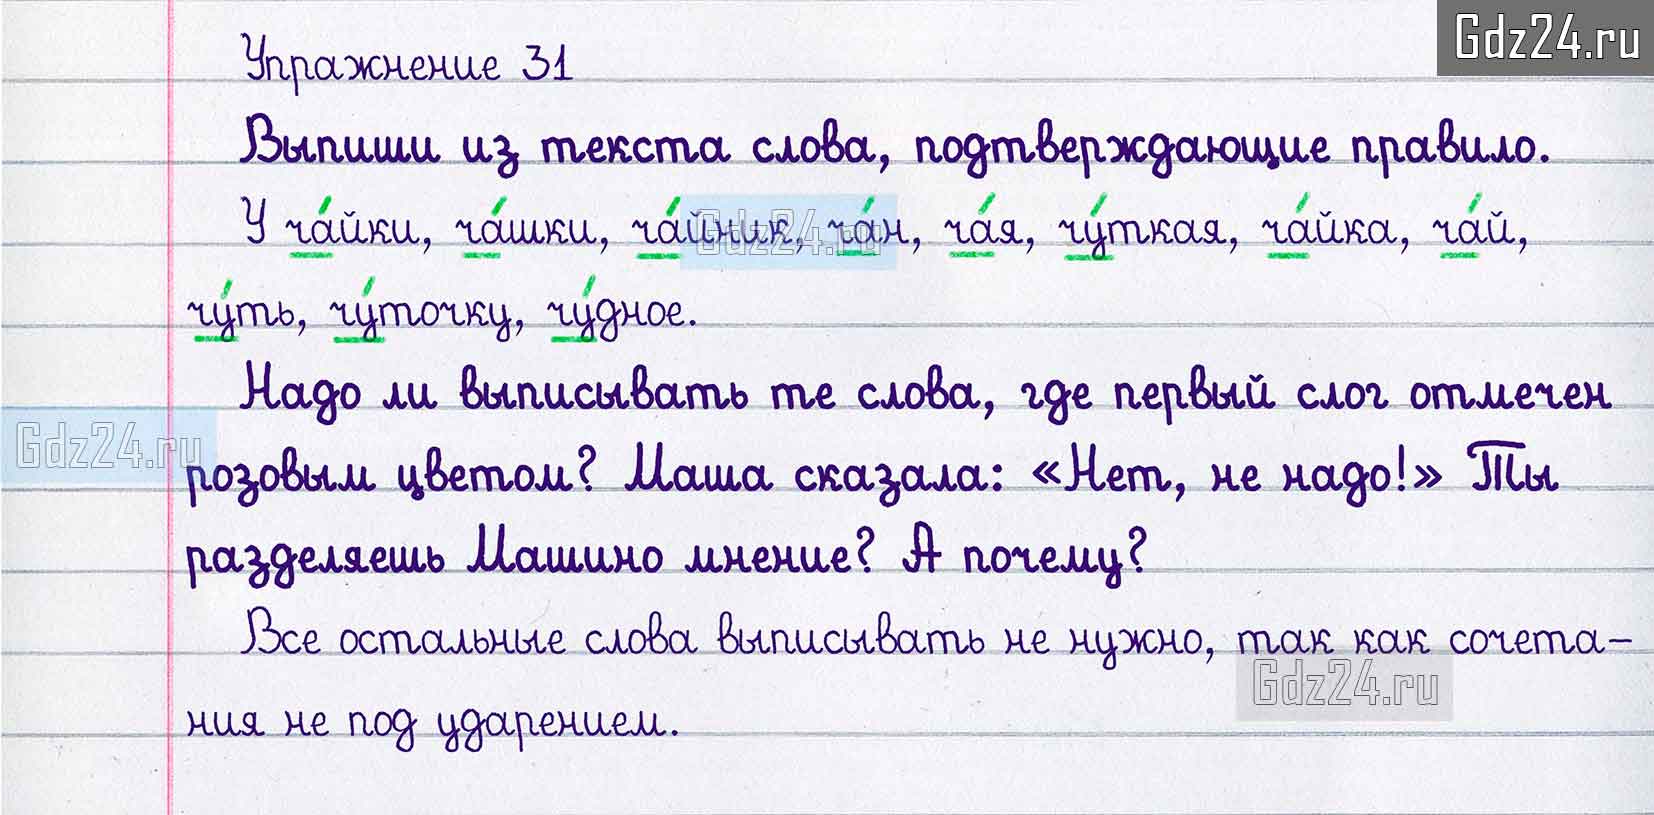 Gdz24.ru
Упражнение 31
Выпиши из текста слова, подтверждающие правило.
У ча́йки, ча́шки, ча́йник, ча́н, ча́я, чу́ткая, ча́йка, ча́й,
Gdz24.ru
чу́ть, чу́точку, чу́дное.
Надо ли выписывать те слова, где первый слог отмечен
Gdz24.ru
розовым цветом? Маша сказала: «Нет, не надо!» Ты
разделяешь Машино мнение? А почему?
Все остальные слова выписывать не нужно, так как сочета-
Gdz24.ru
ния не под ударением.